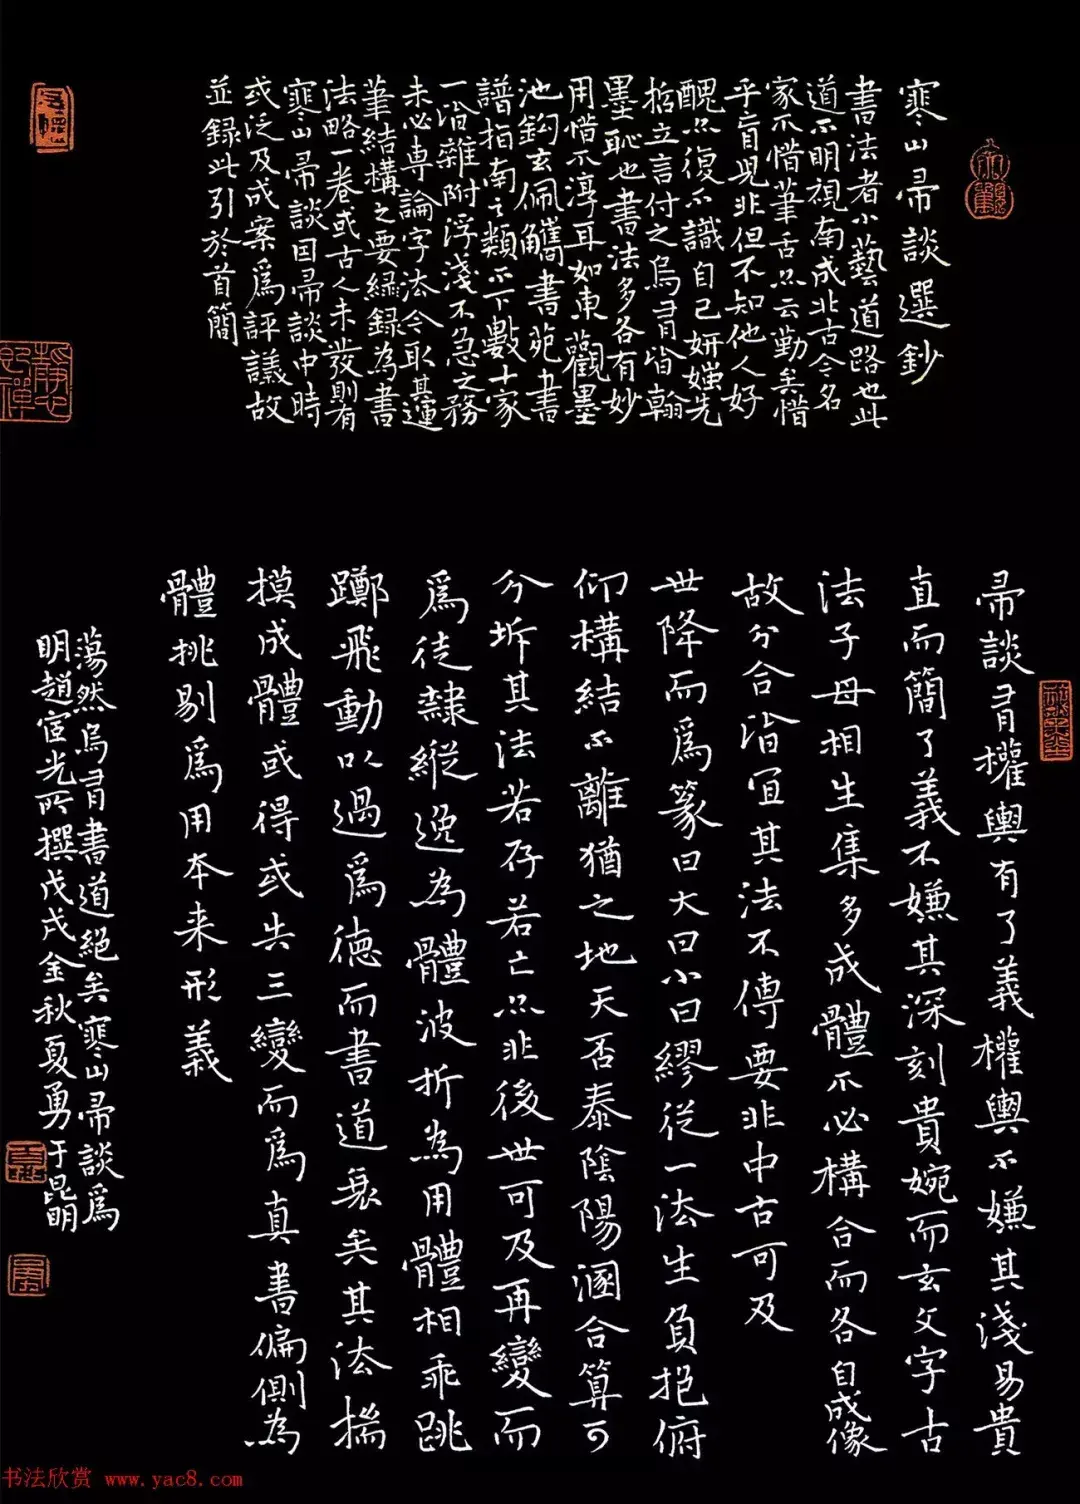 寒山帚談選鈔
書法者小藝道路也此
道不明視南成北古今名
家不惜筆舌然云勤矣惜
乎盲覓非但不知他人好
醜然復不識自己妍媸先
哲立言付之烏有皆翰
墨恥也書法多各有妙
用惜不淳耳如東觀墨
池鈎玄佩觿書苑書
譜指南之類不下數十家
一洎雜附浮淺不急之務
未必專論字法今取其運
筆結構之要緝錄為書
法略一卷或古人未發則有
寒山帚談因帚談中時
或泛及成案爲評議故
並録此引於首簡
帚談有權輿有了義權輿不嫌其淺易貴
直而簡了義不嫌其深刻貴婉而玄文字古
法子母相生集多成體不必構合而各自成像
故分合皆宜其法不傳要非中古可及
世降而爲篆曰大曰小曰繆從一法生負抱俯
仰構結不離猶之地天否泰陰陽溷合算可
分坼其法若存若亡然非後世可及再變而
爲徒隸縱逸為體波折為用體相乖跳
躑飛動以過爲德而書道衰矣其法揣
摸成體或得或失三變而爲真書偏側為
體挑剔爲用本来形義
蕩然烏有書道絕矣寒山帚談爲
明趙宧光所撰戊戌金秋夏勇于昆明
书法欣赏 www.yac8.com